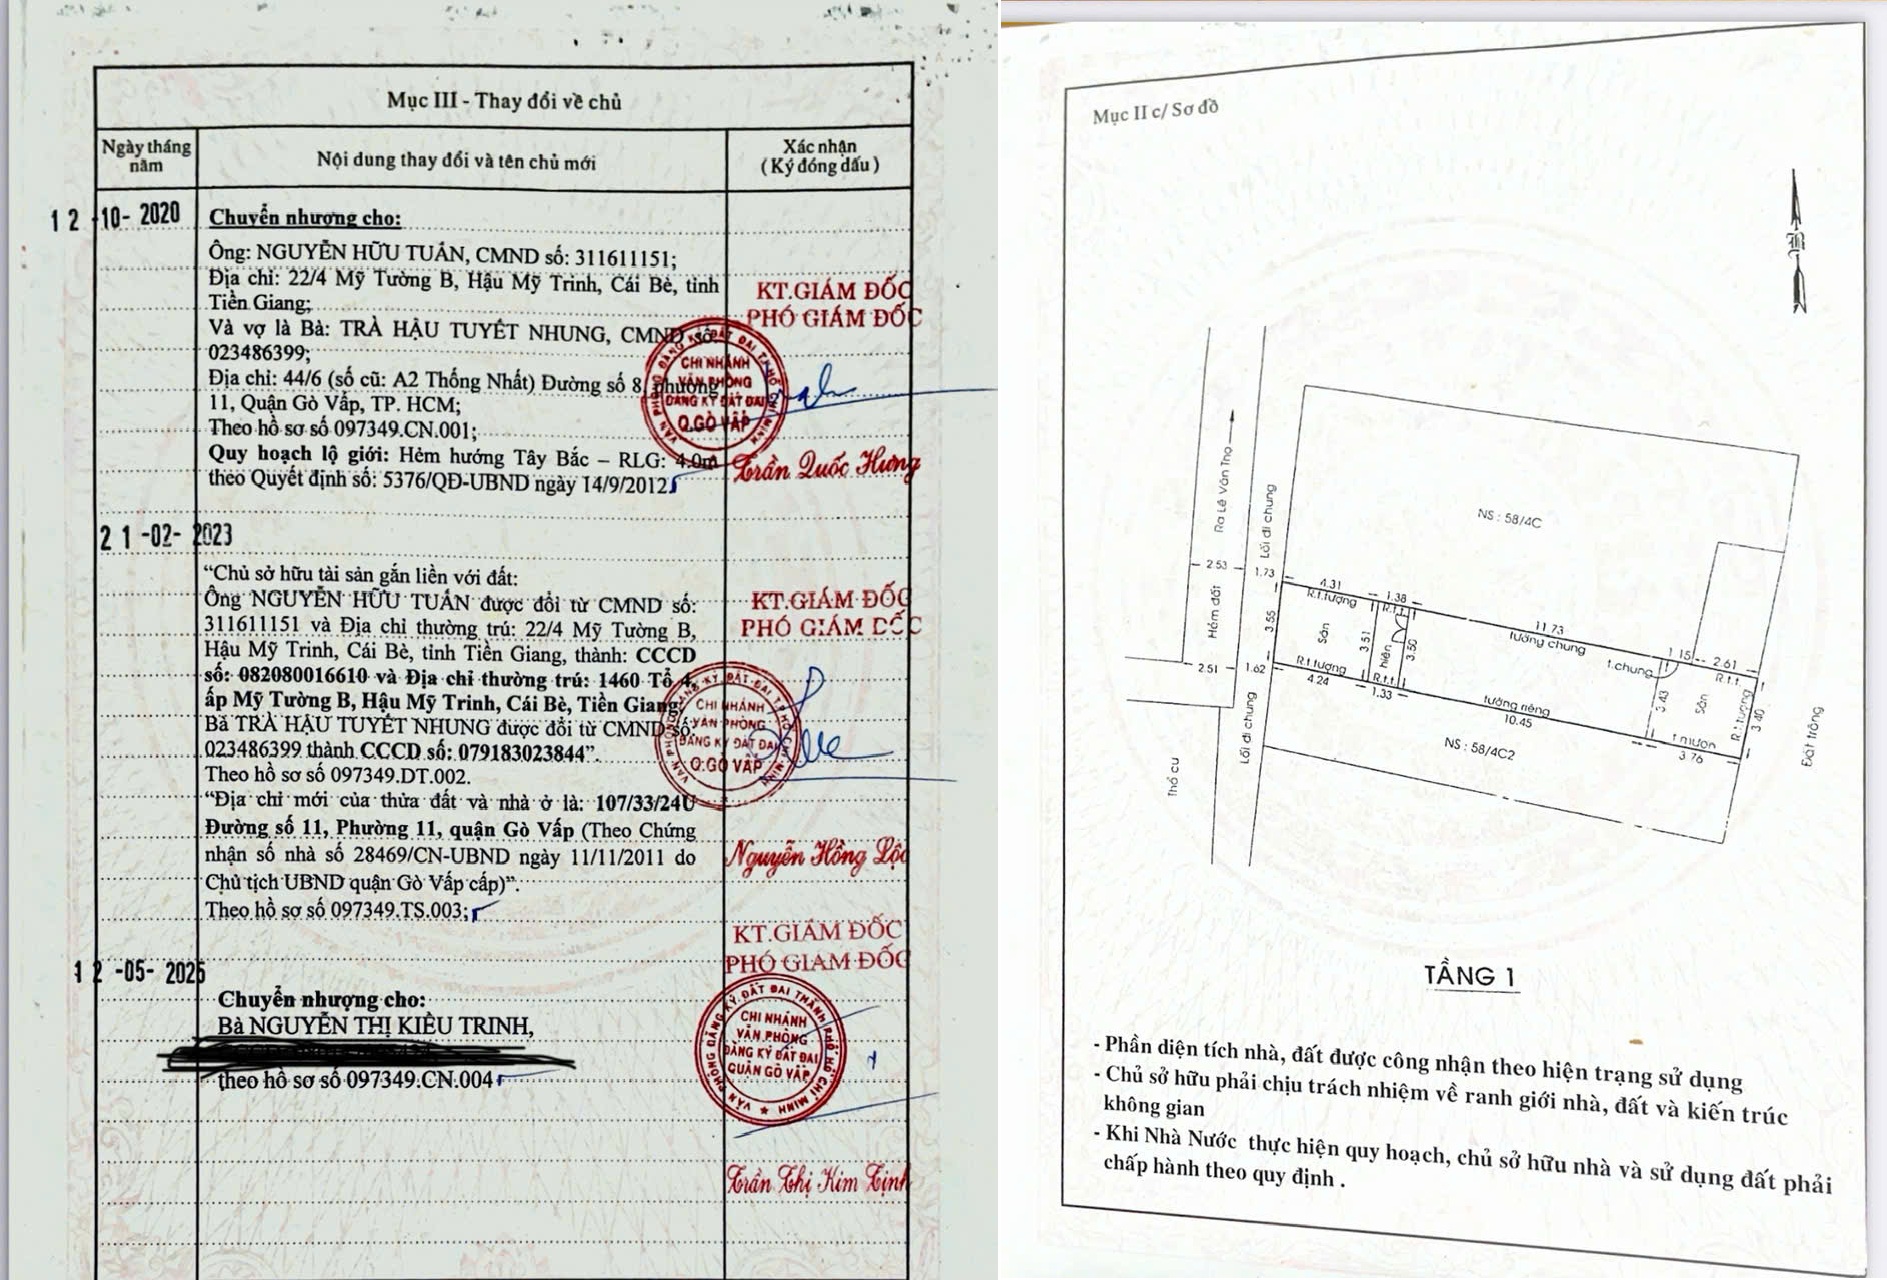 Mục III - Thay đổi về chủ
Ngày tháng năm
Nội dung thay đổi và tên chủ mới
Xác nhận
( Ký đóng dấu )
12 -10- 2020
Chuyển nhượng cho:
Ông: NGUYỄN HỮU TUẤN, CMND số: 311611151;
Địa chỉ: 22/4 Mỹ Tường B, Hậu Mỹ Trinh, Cái Bè, tỉnh
Tiền Giang;
Và vợ là Bà: TRÀ HẬU TUYẾT NHUNG, CMND số
023486399;
Địa chỉ: 44/6 (số cũ: A2 Thống Nhất) Đường số 8, phường
11, Quận Gò Vấp, TP. HCM;
Theo hồ sơ số 097349.CN.001;
Quy hoạch lộ giới: Hẻm hướng Tây Bắc – RLG: 4.0m
theo Quyết định số: 5376/QĐ-UBND ngày 14/9/2012
KT.GIÁM ĐỐC
PHÓ GIÁM ĐỐC
VĂN PHÒNG ĐĂNG KÝ ĐẤT ĐAI T.P HỒ CHÍ MINH
CHI NHÁNH
VĂN PHÒNG
ĐĂNG KÝ ĐẤT ĐAI
Q.GÒ VẤP
Trần Quốc Hưng
21 -02- 2023
“Chủ sở hữu tài sản gắn liền với đất:
Ông NGUYỄN HỮU TUẤN được đổi từ CMND số:
311611151 và Địa chỉ thường trú: 22/4 Mỹ Tường B,
Hậu Mỹ Trinh, Cái Bè, tỉnh Tiền Giang, thành: CCCD
số: 082080016610 và Địa chỉ thường trú: 1460 Tổ 4,
ấp Mỹ Tường B, Hậu Mỹ Trinh, Cái Bè, Tiền Giang;
Bà TRÀ HẬU TUYẾT NHUNG được đổi từ CMND số:
023486399 thành CCCD số: 079183023844”.
Theo hồ sơ số 097349.DT.002.
“Địa chỉ mới của thửa đất và nhà ở là: 107/33/24U
Đường số 11, Phường 11, quận Gò Vấp (Theo Chứng
nhận số nhà số 28469/CN-UBND ngày 11/11/2011 do
Chủ tịch UBND quận Gò Vấp cấp)”.
Theo hồ sơ số 097349.TS.003;
KT.GIÁM ĐỐC
PHÓ GIÁM ĐỐC
CHI NHÁNH
VĂN PHÒNG
ĐĂNG KÝ ĐẤT ĐAI
Q.GÒ VẤP
Nguyễn Hồng Lộc
12 -05- 2025
Chuyển nhượng cho:
Bà NGUYỄN THỊ KIỀU TRINH,
theo hồ sơ số 097349.CN.004
KT.GIÁM ĐỐC
PHÓ GIÁM ĐỐC
VĂN PHÒNG ĐĂNG KÝ ĐẤT ĐAI THÀNH PHỐ HỒ CHÍ MINH
CHI NHÁNH
VĂN PHÒNG
ĐĂNG KÝ ĐẤT ĐAI
QUẬN GÒ VẤP
Trần Thị Kim Định
Mục II c/ Sơ đồ
B
Ra Lê Văn Thọ
Lối đi chung
NS : 58/4C
2.53
1.73
4.31
R.t.tường
1.38
R.t.t
11.73
tường chung
t.chung
1.15
2.61
R.t.t.
Hẻm đất
3.55
Sân
3.51
hiên
3.50
3.43
Sân
R.t.tường
3.40
2.51
1.62
R.t.tường
4.24
R.t.t
1.33
tường riêng
10.45
t.mượn
3.76
Lối đi chung
Thổ cư
NS : 58/4C2
Đất trống
TẦNG 1
- Phần diện tích nhà, đất được công nhận theo hiện trạng sử dụng
- Chủ sở hữu phải chịu trách nhiệm về ranh giới nhà, đất và kiến trúc
không gian
- Khi Nhà Nước thực hiện quy hoạch, chủ sở hữu nhà và sử dụng đất phải
chấp hành theo quy định .